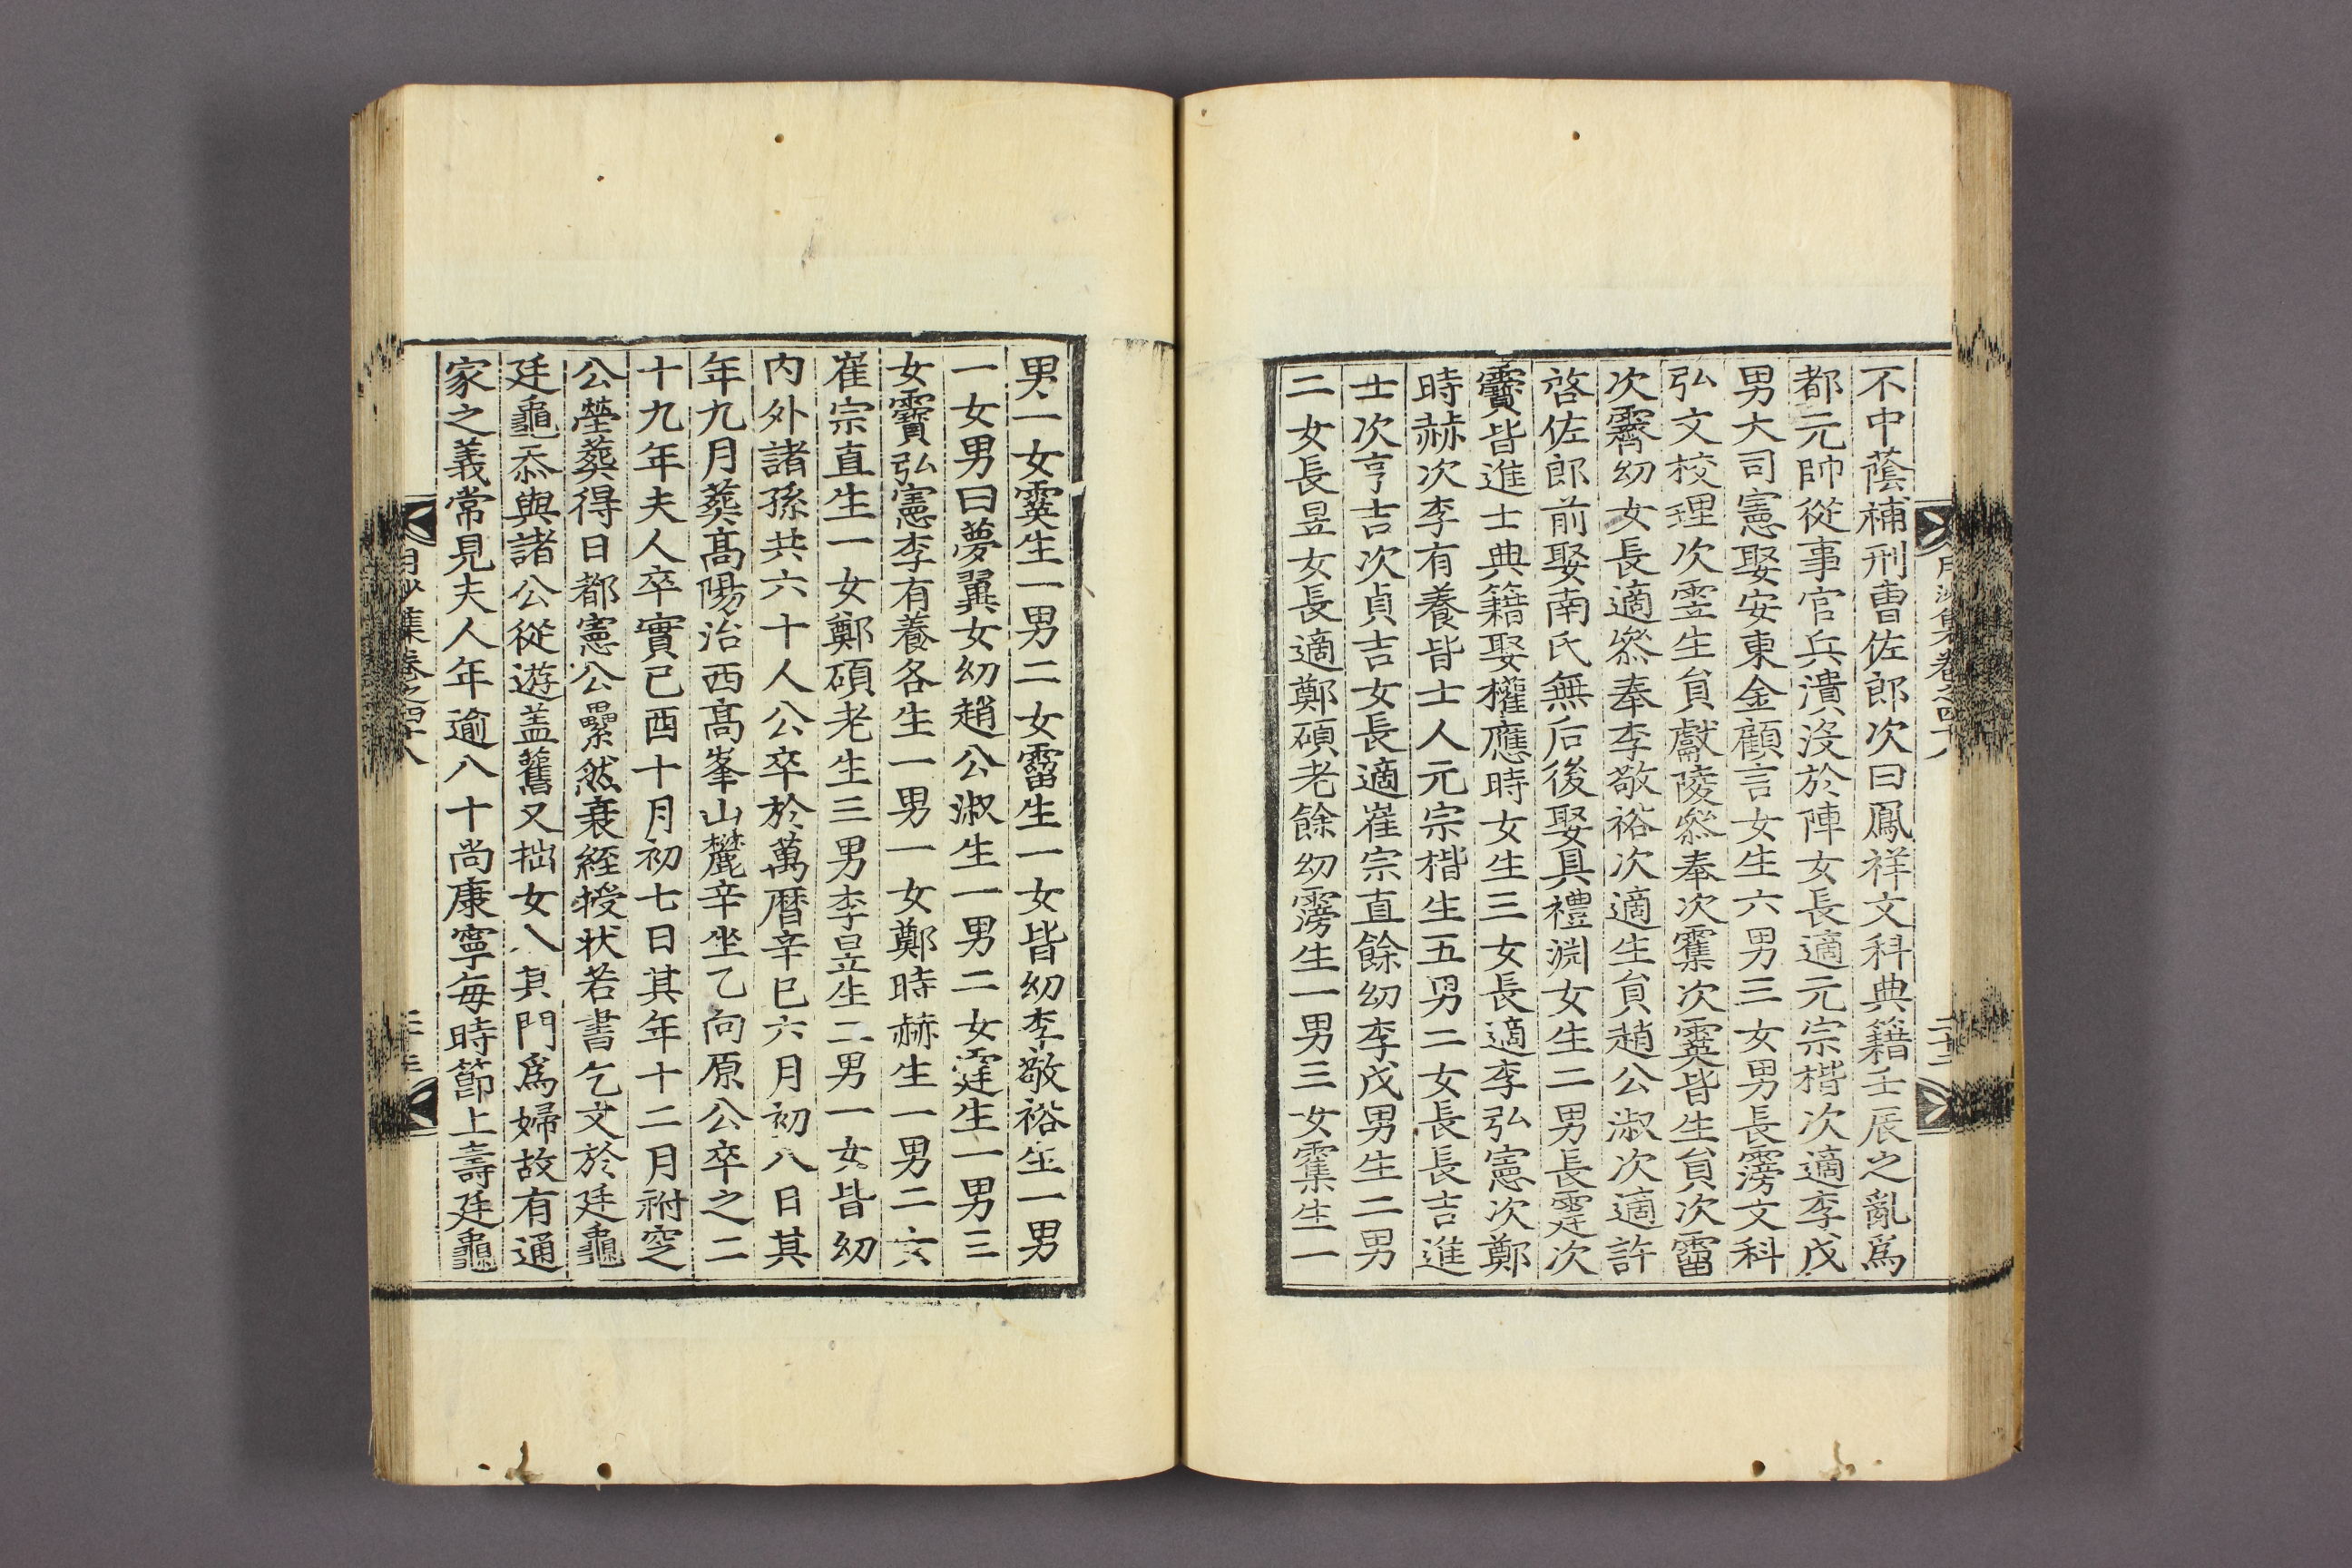 不中蔭補刑曹佐郎次曰鳳祥文科典籍壬辰之亂爲
都元帥從事官兵潰沒於陣女長適元宗楷次適李戊
男大司憲娶安東金顧言女生六男三女男長霶文科
弘文校理次霔生員獻陵叅奉次䨥次霙皆生員次霤
次霽幼女長適叅奉李敬裕次適生員趙公淑次適許
啓佐郎前娶南氏無后後娶具禮淵女生二男長霆次
䨏皆進士典籍娶權應時女生三女長適李弘憲次鄭
時赫次李有養皆士人元宗楷生五男二女長長吉進
士次亨吉次貞吉女長適崔宗直餘幼李戊男生二男
二女長昱女長適鄭碩老餘幼霶生一男三女䨥生一
男一女霙生一男二女霤生一女皆幼李敬裕生一男
一女男曰夢翼女幼趙公淑生一男二女霆生一男三
女䨏弘憲李有養各生一男一女鄭時赫生一男二女
崔宗直生一女鄭碩老生三男李昱生二男一女皆幼
内外諸孫共六十人公卒於萬曆辛巳六月初八日其
年九月葬高陽治西高峯山麓辛坐乙向原公卒之二
十九年夫人卒實己酉十月初七日其年十二月祔窆
公塋葬得日都憲公纍然衰絰授状若書乞文於廷龜
廷龜忝與諸公從遊盖舊又拙女入其門爲婦故有通
家之義常見夫人年逾八十尚康寧每時節上壽廷龜
月沙集卷之四十八